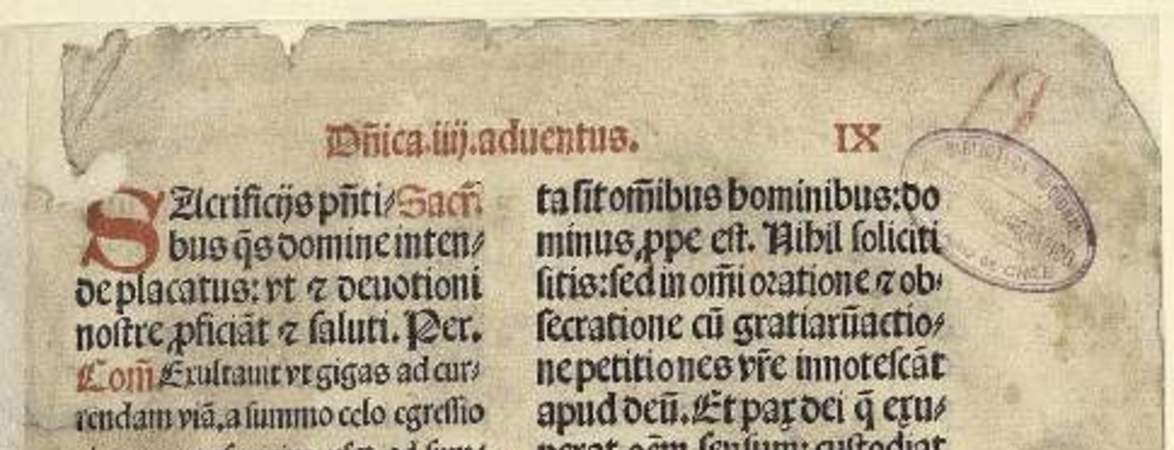 Dñica.iiij.aduentus.
IX
19
SAcrificijs pñti⸗ Sacr̃.
bus q̃s domine inten⸗
de placatus: vt ⁊ deuotioni
nostre ꝓficiãt ⁊ saluti. Per.
Com̃ Exultauit vt gigas ad cur⸗
rendam viã, a summo celo egressio
ta sit om̃ibus hominibus: do
minus ꝓpe est. Nihil soliciti
sitis: sed in om̃i oratione ⁊ ob⸗
secratione cũ gratiarũ actio⸗
ne petitiones vr̃e innotescãt
apud deũ. Et pax dei q̃ exu⸗
perat oẽm sensum: custodiat
BIBLIOTECA NACIONAL
DE CHILE